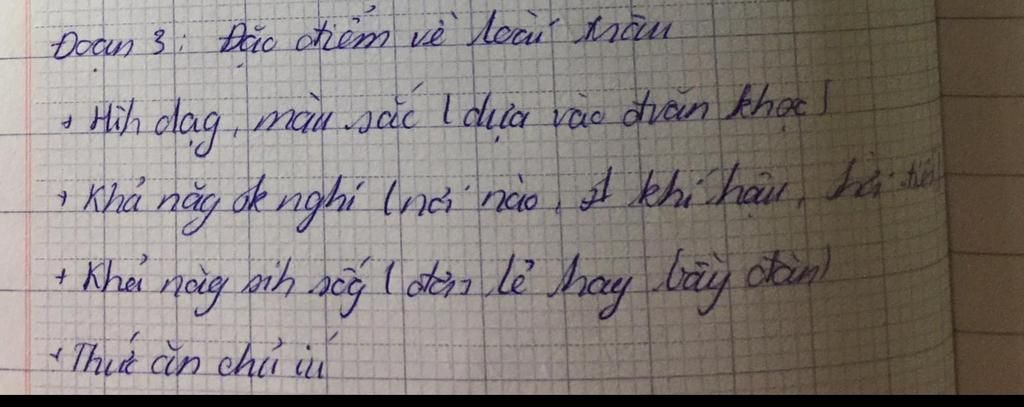 Đoạn 3: Đặc điểm về loài trâu
+ Hìh dạg, màu sắc (dựa vào đoạn khọc)
+ Khả năg nghi (nơi nào, khí hậu,
+ Khả năg sih sốg (đơn lẻ hay bầy đàn)
+ Thức ăn chủ iú